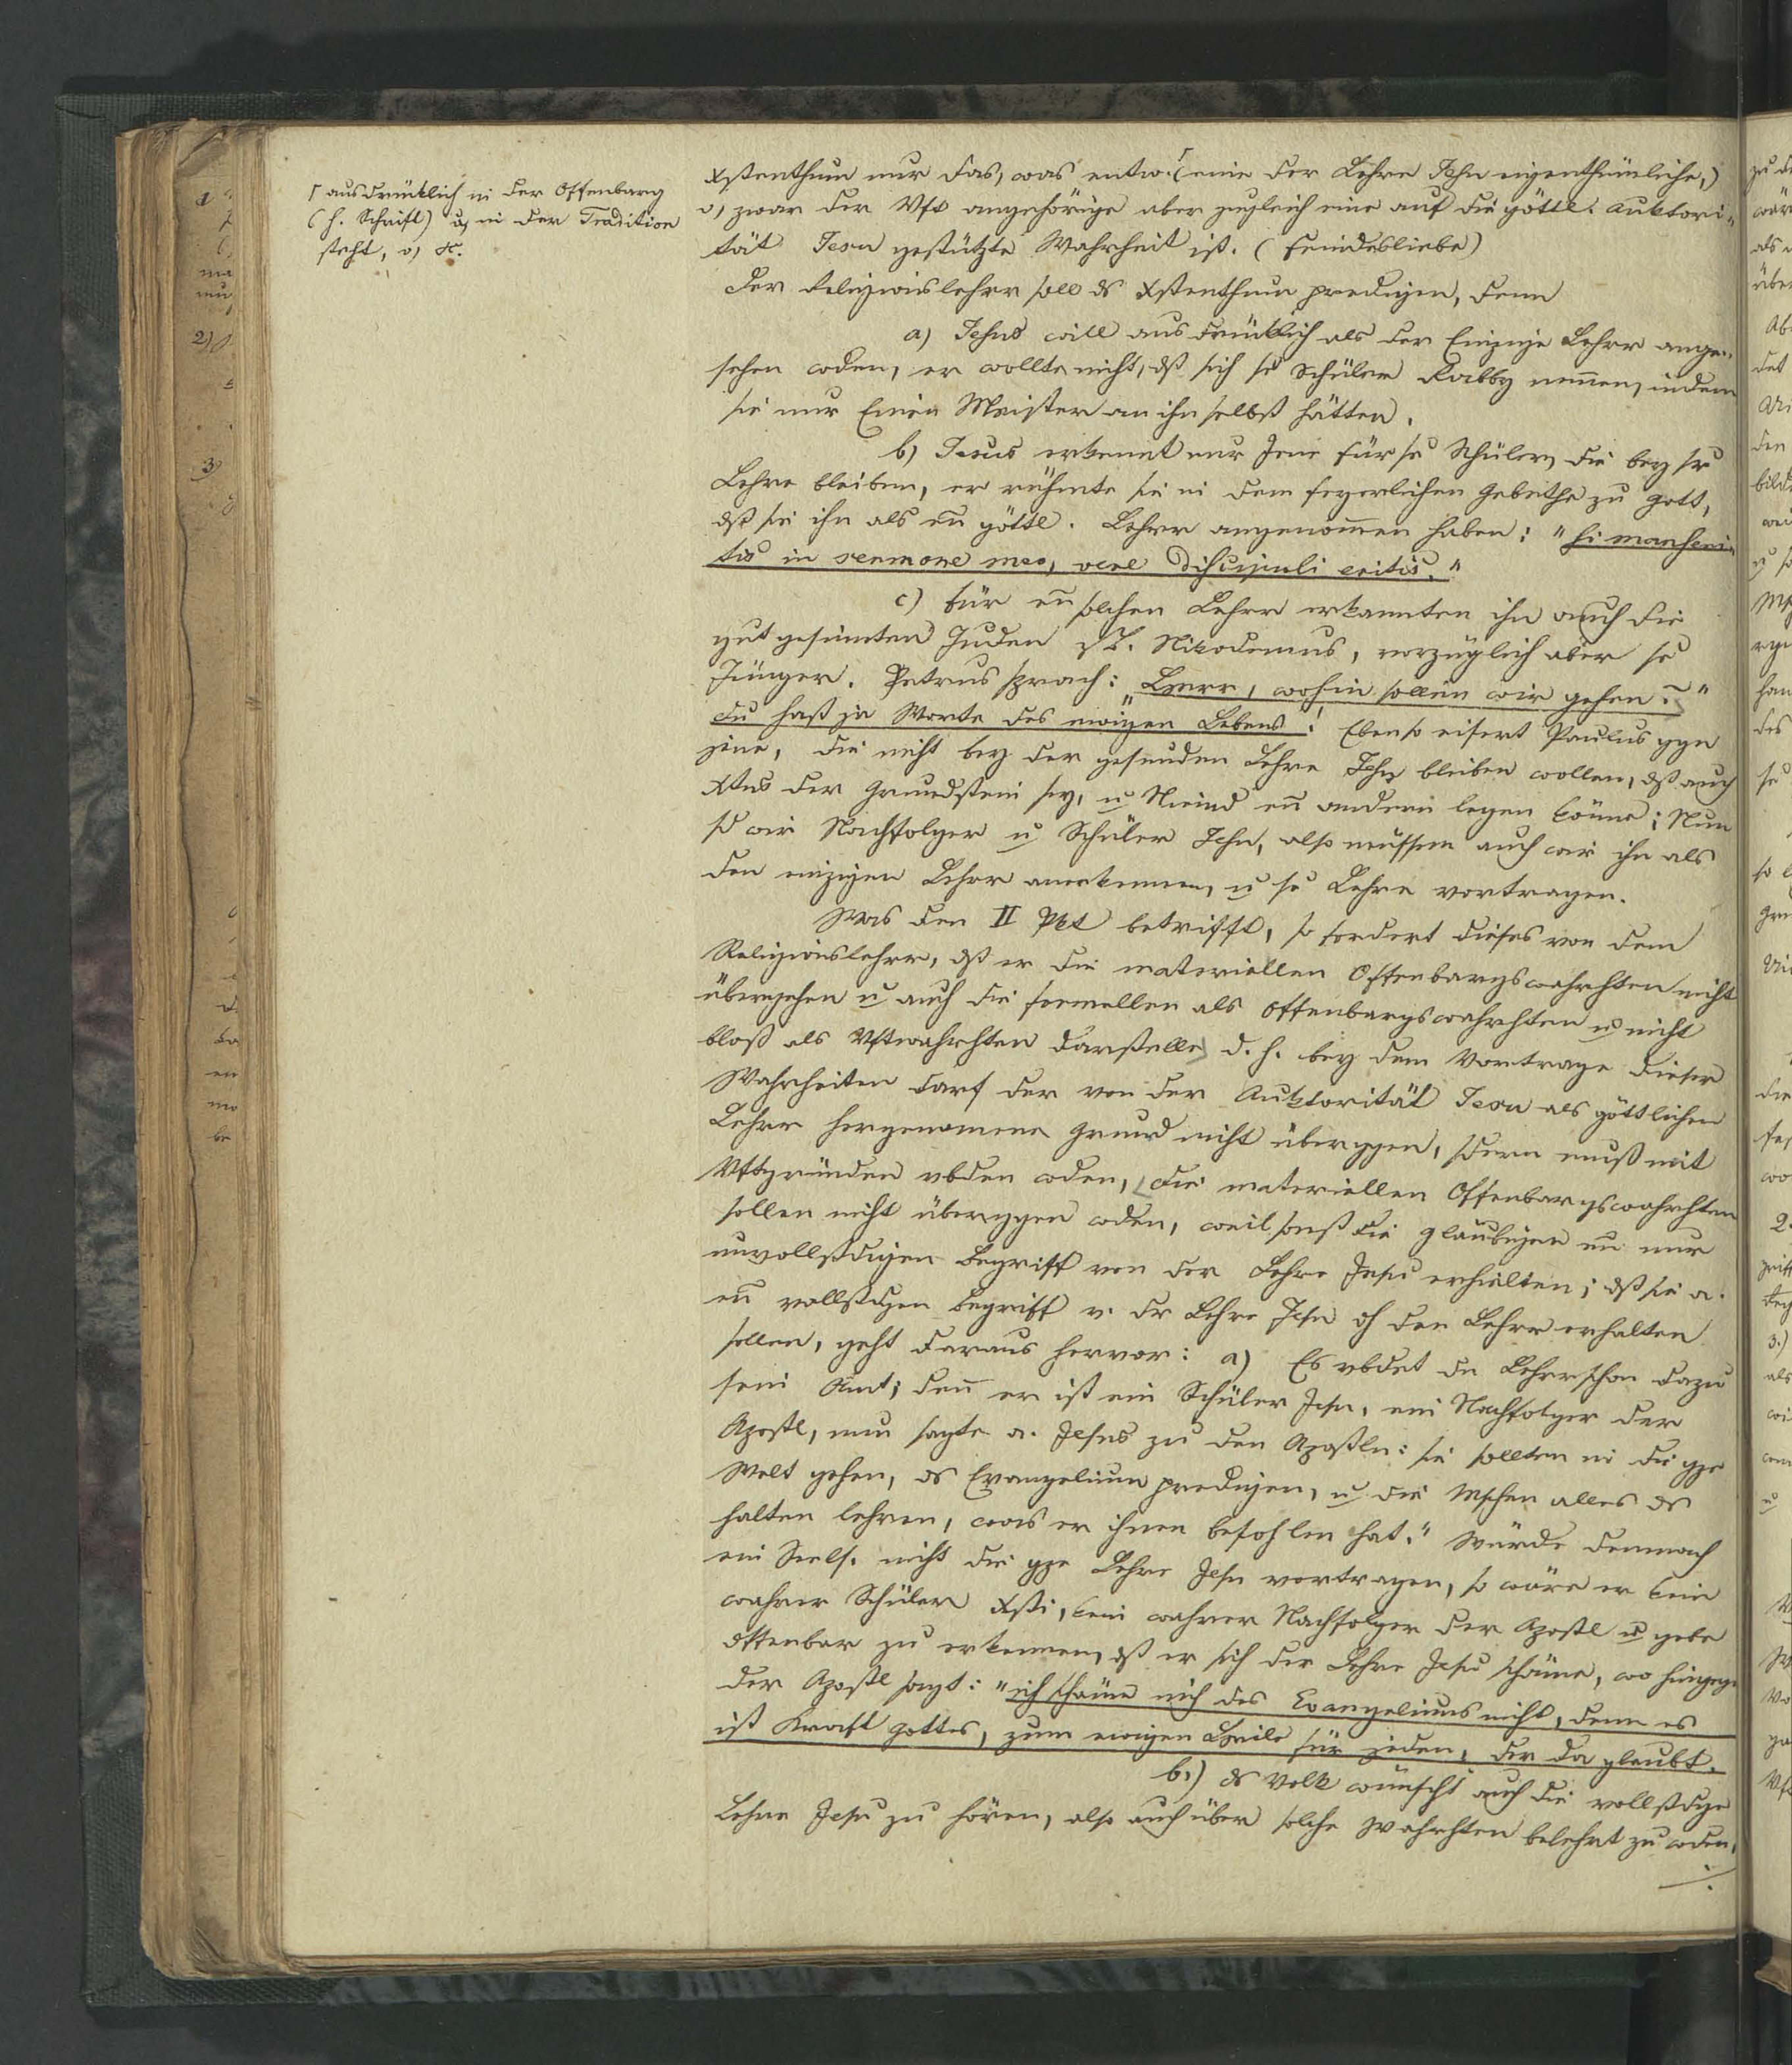 ┌ ausdrüklich in der Offenbarg
(h. Schrift) u in der Tradition
steht, o, &.
Xstenthum nur das, was entw. ┌ (eine der Lehre Jesu eigenthümliche,)
o, zwar der Vft angehörige aber zugleich eine auf die göttl. Auktori-
tät Jesu gestützte Wahrheit ist. (Feindesliebe)
Der Religionslehrer soll ds Xstenthum predigen, denn
a) Jesus will ausdrüklich als der Einzige Lehrer ange-
sehen wden, er wollte nicht, dß sich se Schüler Rabby nennen, indem
sie nur Einen Meister an ihm selbst hätten.
b) Jesus erkennt nur Jene für se Schüler, die bey sr
Lehre bleiben, er rühmte sie in dem feyerlichen Gebethe zu Gott,
dß sie ihn als en göttl. Lehrer angenommen haben: "Si manseri-
tis in sermone meo, vere discipuli eritis."
c) Für en solchen Lehrer erkannten ihn auch die
gutgesinnten Juden z. B. Nikodemus, vorzüglich aber se
Jünger. Petrus sprach: "Herr, wohin sollen wir gehen?"
"du hast ja Worte des ewigen Lebens"! Ebenso eifert Paulus ggn
jene, die nicht bey der gesunden Lehre Jesu bleiben wollen, dß auch
Xtus der Grundstein sey, u Niemd en andern legen könne; Nun
sd wir Nachfolger u Schüler Jesu, also müssen auch wir ihn als
den einzigen Lehrer anerkennen, u se Lehre vortragen.
Was den II Pkt betrifft, so fordert dieses von dem
Religionslehrer, dß er die materiellen Offenbargswahrhten nicht
übergehen u auch die formellen als Offenbargswahrhten u nicht
bloß als Vftwahrhten darstelle, d. h. bey dem Vortrage dieser
Wahrheiten darf der von der Auktorität Jesu als göttlichen
Lehrer hergenommene Grund nicht überggen, sdern muß mit
Vftgründen vbden wden, die materiellen Offenbargswahrhten
sollen nicht überggen wden, weil sonst die Gläubigen en nur
unvollstdigen Begriff von der Lehre Jesu erhielten; dß sie a.
en vollstdgen Begriff v. dr Lehre Jesu dh den Lehrer erhalten
sollen, geht daraus hervor: a) Es vbdet dn Lehrer schon dazu
sein Amt; denn er ist ein Schüler Jesu, ein Nachfolger der
Apostl, nun sagte a. Jesus zu den Aposteln: sie sollten in die gze
Welt gehen, ds Evangelium predigen, u die Mschen alles ds
halten lehren, was er ihnen befohlen hat." Würde demnach
ein Seels. nicht die gze Lehre Jesu vortragen, so wäre er kein
wahrer Schüler Xsti, kein wahrer Nachfolger der Apostl u gebe
offenbar zu erkennen, dß er sich der Lehre Jesu schäme, wo hingegn
der Apostl sagt: "ich schäme mich des Evangeliums nicht, denn es
ist Kraft Gottes, zum ewigen Heile für jeden, der da glaubt.
b.) ds Volk wünscht auch die vollstdge
Lehre Jesu zu hören, also auch über solche Wahrhten belehrt zu wden,